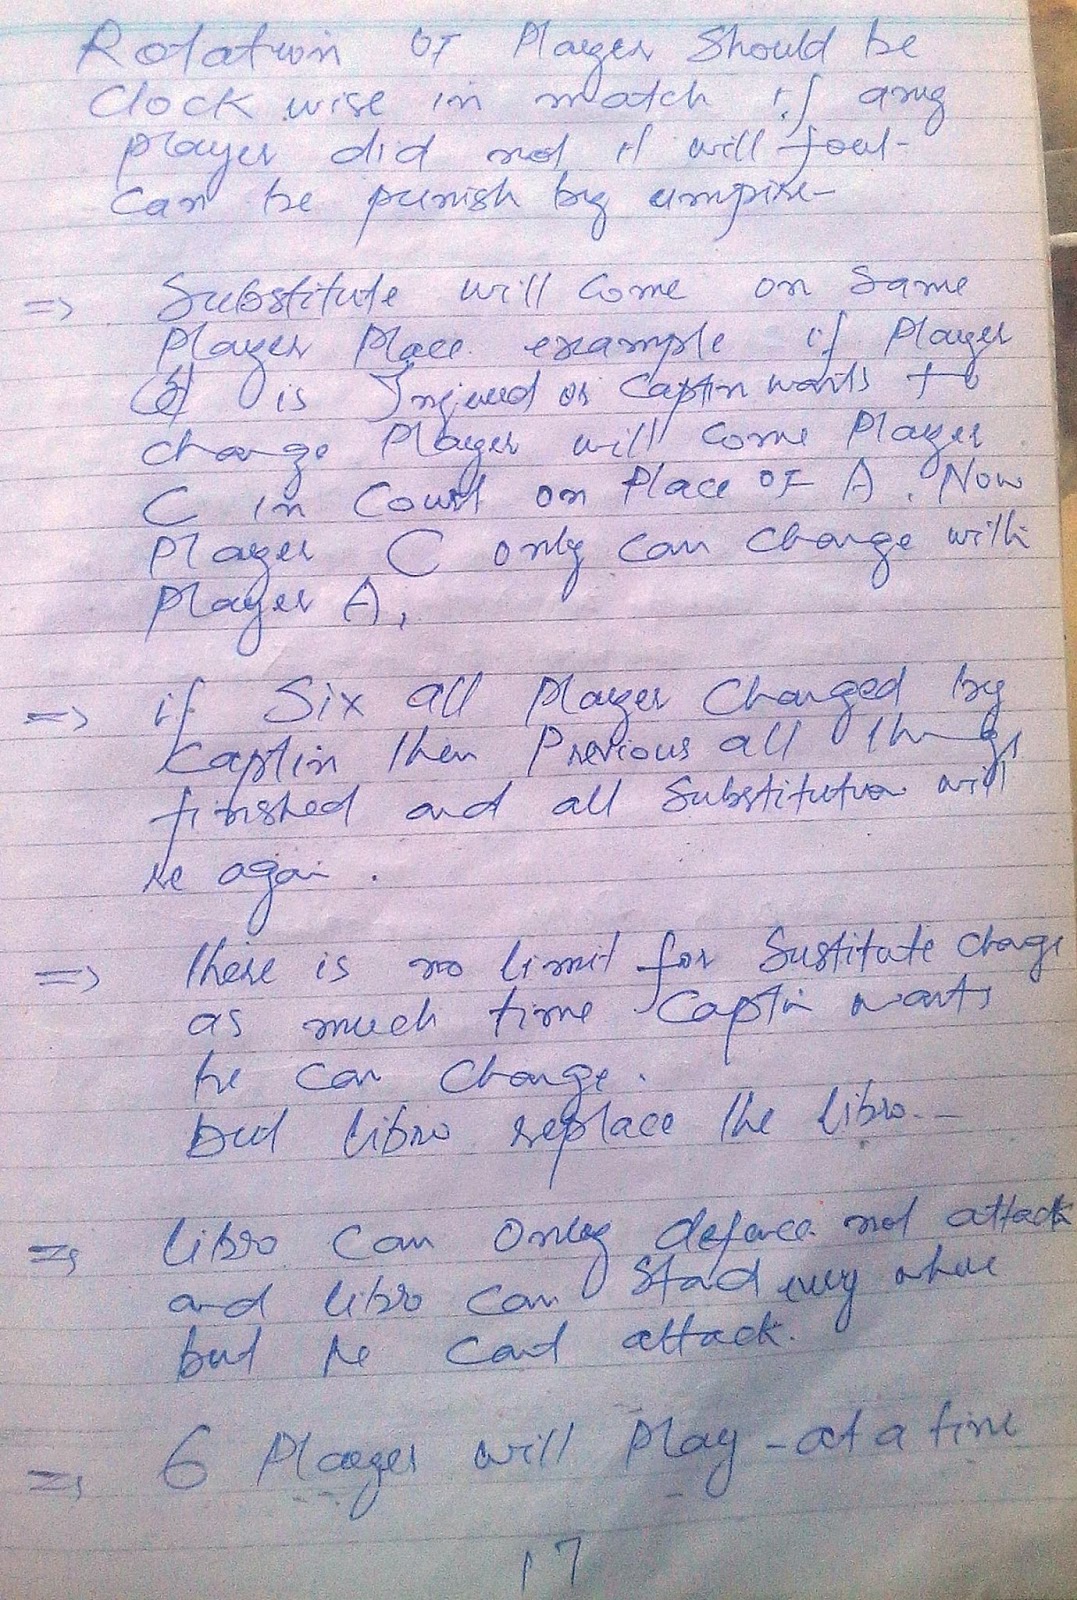 Rotation of Player Should be
Clock wise in match if any
player did not it will foul-
Can be punish by umpire-
=> Substitute will Come on Same
Player Place example if Player
is Injured or Captin wants to
change Player will come Player
C in Court on Place of A. Now
Player C only can change with
Player A,
=> if Six all Player Changed by
Captin then Previous all things
finished and all Substitution will
be again.
=> there is no limit for Sustitute change
as much time Captin wants
he can Change.
but libro replace the libro--
=> libro can Only defence not attack
and libro can Stad every where
but he cant attack.
=> 6 Player will Play -at a time
17